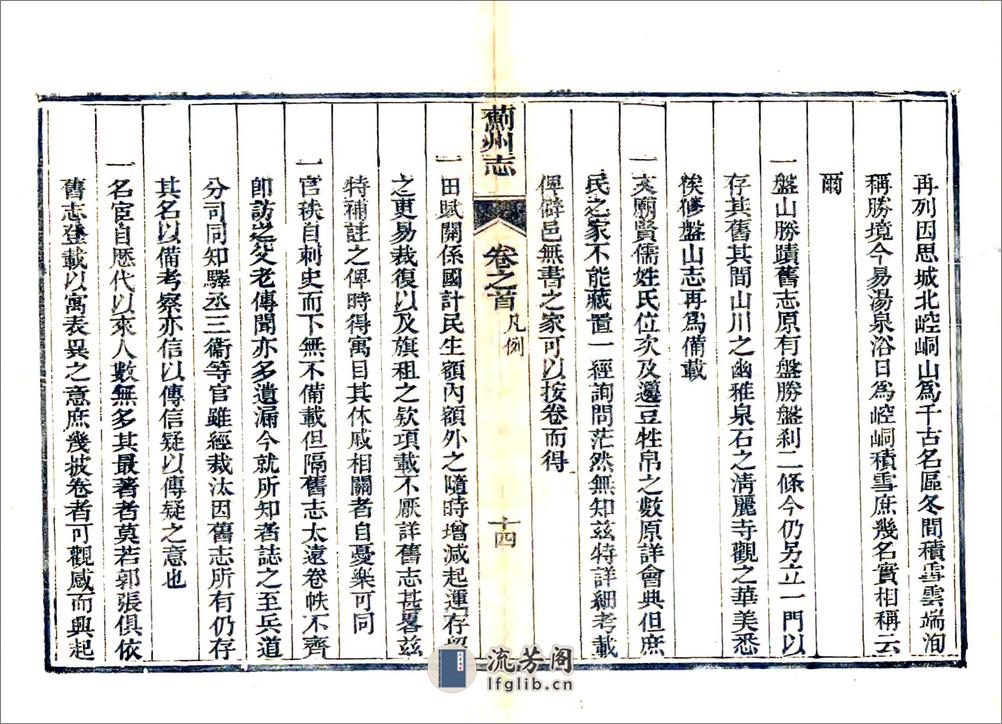 再列因思城北崆峒山爲千古名區冬間積雪雲端洵
稱勝境今易湯泉浴日爲崆峒積雪庶幾名實相稱云
爾
一盤山勝蹟舊志原有盤勝盤刹二條今仍另立一門以
存其舊其間山川之幽雅泉石之清麗寺觀之華美悉
俟修盤山志再爲備載
一文廟賢儒姓氏位次及籩豆牲帛之數原詳會典但庶
民之家不能藏置一經詢問茫然無知兹特詳細考載
俾僻邑無書之家可以按卷而得
薊州志
卷之首
凡例
十四
一田賦關係國計民生額內額外之隨時增減起運存留
之更易裁復以及旗租之欵項載不厭詳舊志甚畧兹
特補註之俾時得寓目其休戚相關者自憂樂可同
一官秩自刺史而下無不備載但隔舊志太遠卷帙不齊
卽訪之父老傳聞亦多遺漏今就所知者誌之至兵道
分司同知驛丞三衞等官雖經裁汰因舊志所有仍存
其名以備考察亦信以傳信疑以傳疑之意也
一名宦自歷代以來人數無多其最著者莫若郭張俱依
舊志登載以寓表異之意庶幾披卷者可觀感而興起
流芳閣
lfglib.cn